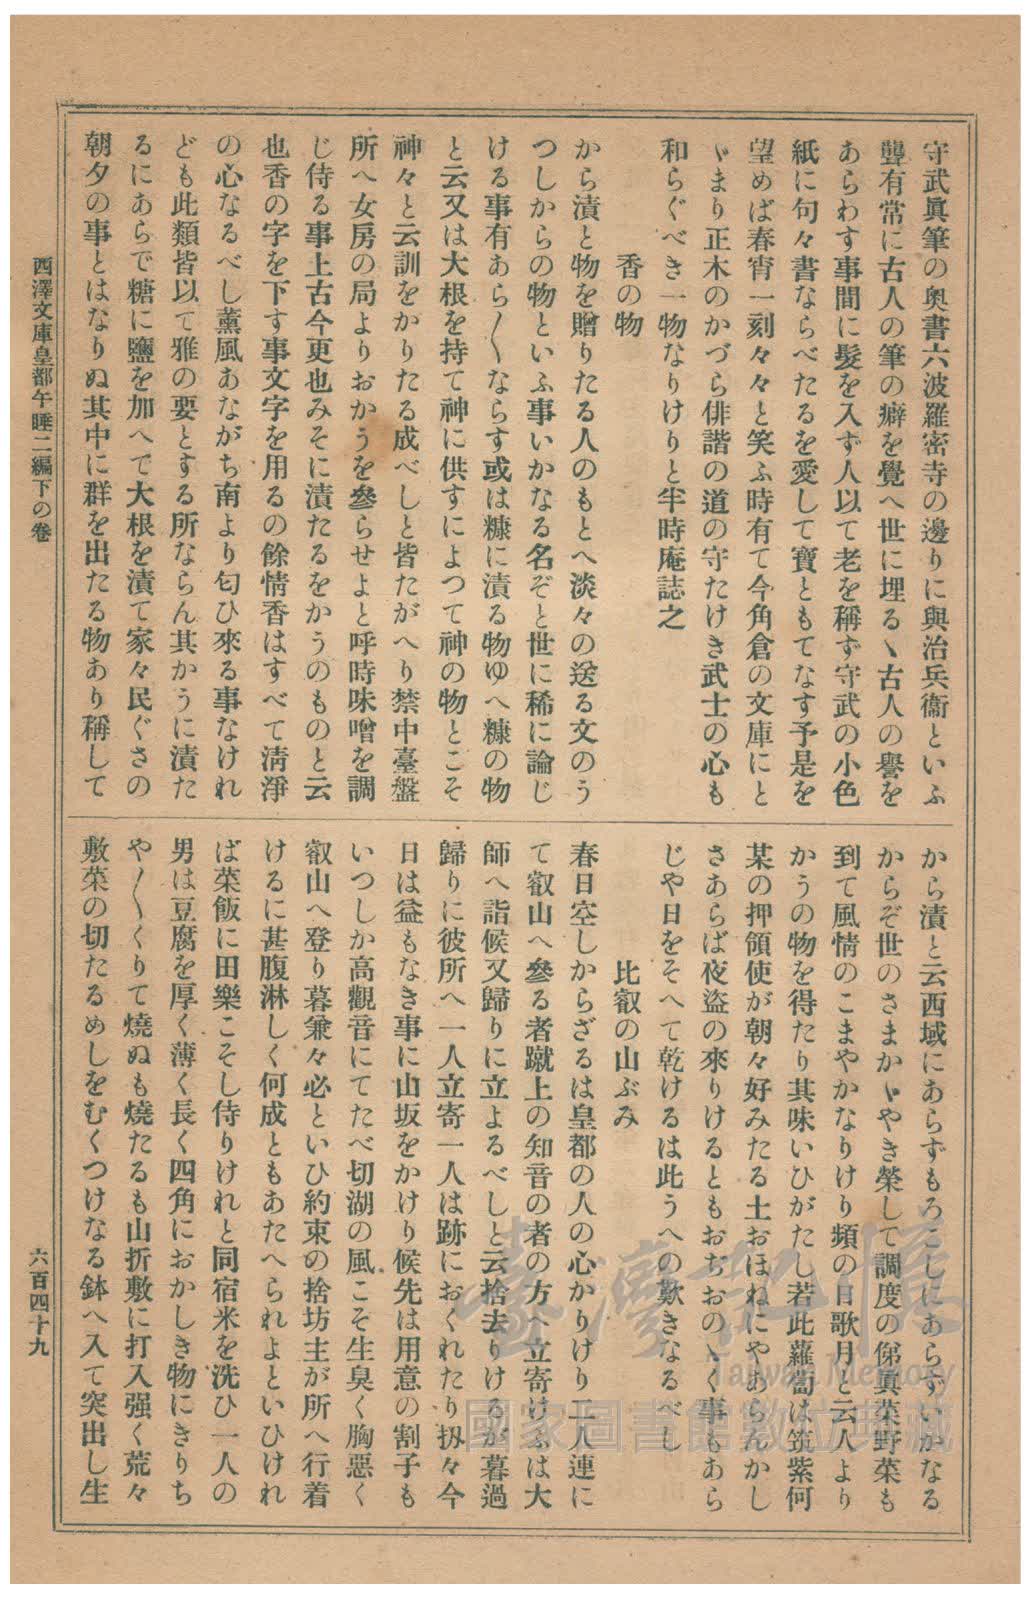 守武眞筆の奧書六波羅密寺の邊りに與治兵衞といふ
聾有常に古人の筆の癖を覺へ世に埋るゝ古人の譽を
あらわす事間に髮を入ず人以て老を稱ず守武の小色
紙に句々書ならべたるを愛して寶ともてなす予是を
望めば春宵一刻々々と笑ふ時有て今角倉の文庫にと
ゞまり正木のかづら俳諧の道の守たけき武士の心も
和らぐべき一物なりけりと半時庵誌之
香の物
から漬と物を贈りたる人のもとへ淡々の送る文のう
つしからの物といふ事いかなる名ぞと世に稀に論じ
ける事有あら〳〵ならす或は糠に漬る物ゆへ糠の物
と云又は大根を持て神に供すによつて神の物とこそ
神々と云訓をかりたる成べしと皆たがへり禁中臺盤
所へ女房の局よりおかうを參らせよと呼時味噌を調
じ侍る事上古今更也みそに漬たるをかうのものと云
也香の字を下す事文字を用るの餘情香はすべて淸淨
の心なるべし薰風あながち南より匂ひ來る事なけれ
ども此類皆以て雅の要とする所ならん其かうに漬た
るにあらで糖に鹽を加へて大根を漬て家々民ぐさの
朝夕の事とはなりぬ其中に群を出たる物あり稱して
から漬と云西域にあらずもろこしにあらずいかなる
からぞ世のさまかゞやき榮して調度の傛眞菜野菜も
到て風情のこまやかなりけり頻の日歌月と云人より
かうの物を得たり其味いひがたし若此蘿蔔は筑紫何
某の押領使が朝々好みたる土おほねにやあらんかし
さあらば夜盗の來りけるともおぢおのゝく事もあら
じや日をそへて乾けるは此うへの歎きなるべし
比叡の山ぶみ
春日空しからざるは皇都の人の心かりけり二人連に
て叡山へ參る者蹴上の知音の者の方へ立寄けふは大
師へ詣候又歸りに立よるべしと云捨去りけるが暮過
歸りに彼所へ一人立寄一人は跡におくれたり扨々今
日は益もなき事に山坂をかけり候先は用意の割子も
いつしか高觀音にてたべ切湖の風こそ生臭く胸惡く
叡山へ登り暮兼々必といひ約束の捨坊主が所へ行着
けるに甚腹淋しく何成ともあたへられよといひけれ
ば菜飯に田樂こそし侍りけれと同宿米を洗ひ一人の
男は豆腐を厚く薄く長く四角におかしき物にきりち
や〳〵くりて燒ぬも燒たるも山折敷に打入强く荒々
敷菜の切たるめしをむくつけなる鉢へ入て突出し生
西澤文庫皇都午睡二編下の卷
六百四十九
臺灣記憶
Taiwan Memory
國家圖書館數位典藏